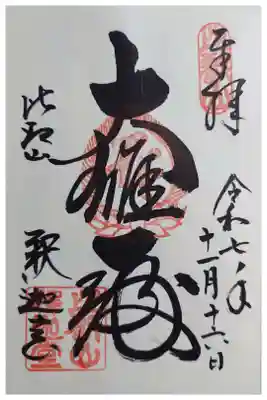 奉拝
令和七年
十一月十六日
大雄殿
比叡山
釈迦堂